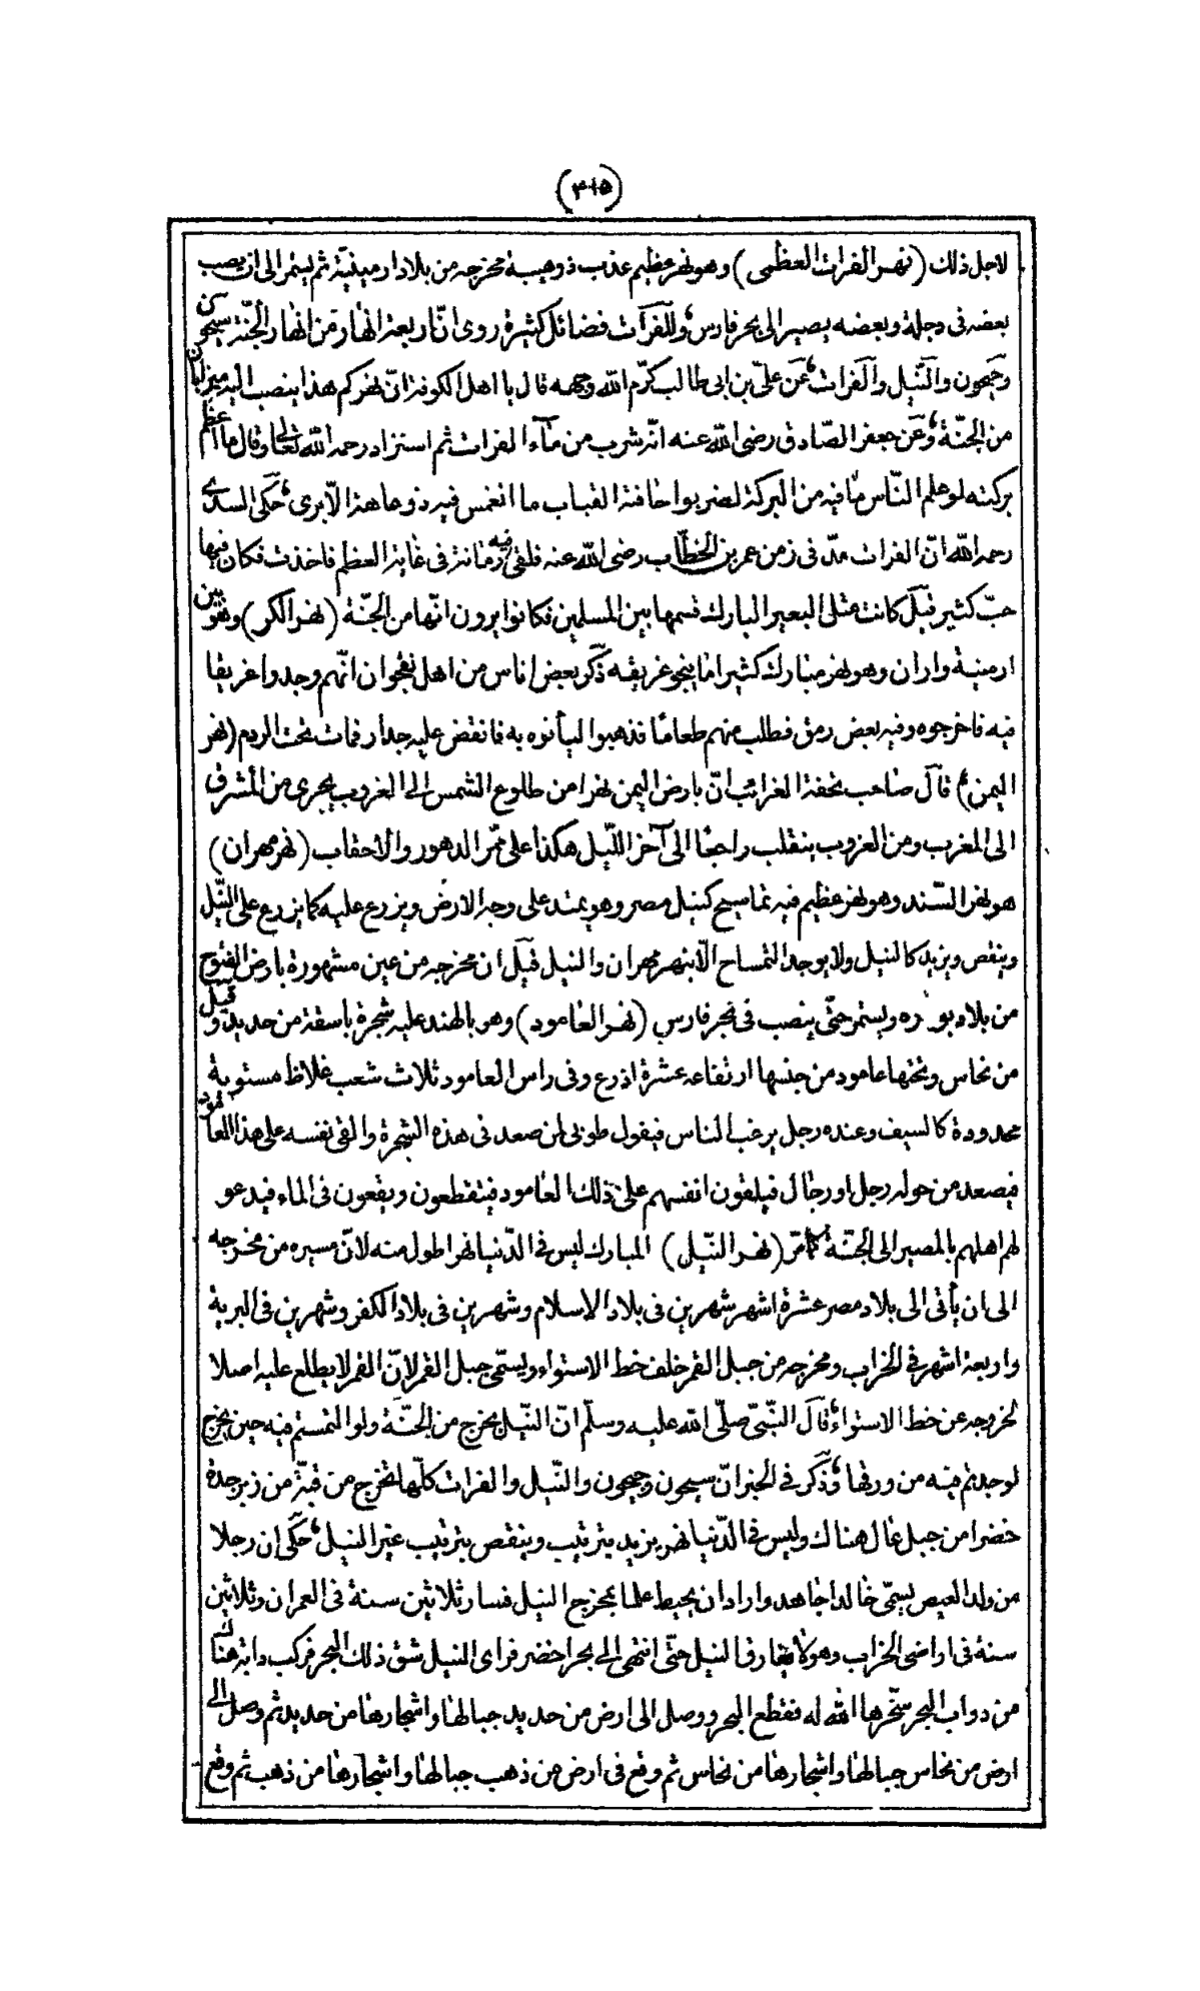 (٣١٥)
لاجل ذلك (نهر الفرات العظمى) وهو نهر عظيم عذب ذو هيبة مخرجه من بلاد ارمينية ثم يستمر الى ان يصب
بعضه فى دجلة وبعضه يصير الى بحر فارس وللفرات فضائل كثيرة روى انّ اربعة انهار من انهار الجنّة سيحون
وجيحون والنّيل والفرات عن علىّ بن ابى طالب كرّم الله وجهه قال يا اهل الكوفة انّ نهركم هذا ينصب اليه ميزابان
من الجنّة وعن جعفر الصّادق رضى الله عنه انّه شرب من مآء الفرات ثم استزاد رحمه الله تعالى وقال ما اعظم
بركته لو علم النّاس ما فيه من البركة لضربوا حافته القباب ما انغمس فيه ذو عاهة الّا برى حكى السدى
رحمه الله انّ الفرات مدّ فى زمن عمر بن الخطّاب رضى الله عنه فلقى فيه رمانة فى غاية العظم فاخذت فكان فيها
حبّ كثير قيل كانت مثل البعير البارك قسمها بين المسلمين فكانوا يرون انّها من الجنّة (نهر الكر) وهو بين
ارمينية واران وهو نهر مبارك كثيرا ما ينجو غريقه ذكر بعض اناس من اهل نقجوان انّهم وجدوا غريقا
فيه فاخرجوه وفيه بعض رمق فطلب منهم طعامًا فذهبوا ليأتوه به فانقض عليه جدار فمات تحت الردم (نهر
اليمن) قال صاحب تحفة الغرائب انّ بارض اليمن نهرا من طلوع الشمس الى الغروب يجرى من المشرق
الى المغرب ومن الغروب ينقلب راجعًا الى آخر اللّيل هكذا على ممّر الدهور والاحقاب (نهر مهران)
هو نهر السّند وهو نهر عظيم فيه تماسيح كنيل مصر وهو يمتد على وجه الارض ويزرع عليه كما يزرع على النّيل
وينقص ويزيد كالنيل ولا يوجد التمساح الّا بنهر مهران والنيل قيل ان مخرجه من عين مشهورة بارض
من بلاد ويستمر حتّى ينصب فى بحر فارس (نهر العامود) وهو بالهند عليه شجرة باسقة من حديد وقيل
من نحاس وتحتها عامود من جنسها ارتفاعه عشرة اذرع وفى راس العامود ثلاث شعب غلاظ مستوية
محدودة كالسيف وعنده رجل يرغب الناس فيقول طوبى لمن صعد فى هذه الشجرة والقى نفسه على هذا العامود
فيصعد من حوله رجل او رجال فيلقون انفسهم على ذلك العامود فيتقطعون ويقعون فى الماء فيدعو
لهم اهلهم بالمصير الى الجنّة كما مرّ (نهر النّيل) المبارك ليس فى الدّنيا نهرا طول منه لانّ مسيره من مخرجه
الى ان يأتى الى بلاد مصر عشرة اشهر شهرين فى بلاد الاسلام وشهرين فى بلاد الكفر وشهرين فى البرية
واربعة اشهر فى الخراب ومخرجه من جبل القمر خلف خط الاستواء ويسمّى جبل القمر لانّ القمر لا يطلع عليه اصلا
لخروجه عن خط الاستواء قال النّبىّ صلّى الله عليه وسلّم انّ النّيل يخرج من الجنّة ولو التمستم فيه حين يخرج
لوجدتم فيه من ورقها وذكر فى الخبر انّ سيحون وجيحون والنّيل والفرات كلّها تخرج من قبّة من زبرجدة
خضرا من جبل عال هناك وليس فى الدّنيا نهر يزيد بترتيب وينقص بترتيب غير النيل حكى ان رجلا
من ولد العيص يسمّى خالدا جاهد وارادان يحيط علما بمخرج النيل فسار ثلاثين سنة فى العمران وثلاثين
سنة فى اراضى الخراب وهو لا يفارق النيل حتّى انتهى الى بحر اخضر فراى النيل شق ذلك البحر فركب دابة هناك
من دواب البحر سخّرها الله له فقطع البحر ووصل الى ارض من حديد جبالها واشجارها من حديد ثم وصل الى
ارض من نحاس جبالها واشجارها من نحاس ثم وقع فى ارض من ذهب جبالها واشجارها من ذهب ثم وقع